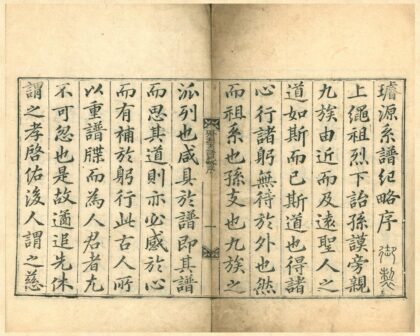 璿源系譜紀略序 御製
上繩祖烈下詒孫謨旁親
九族由近而及遠聖人之
道如斯而已斯道也得諸
心行諸躬無待於外也然
而祖系也孫支也九族之
一
派列也咸具於譜即其譜
而思其道則亦必感於心
而有補於躬行此古人所
以重譜牒而為人君者尤
不可忽也是故遹追先休
謂之孝啓佑後人謂之慈